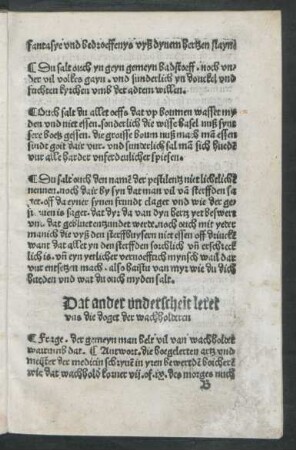 fantasye vnd bedroeffenys vyß dynem hertzen slayn
¶ Du salt ouch yn geyn gemeyn badstoeff. noch vn-
der vil volcks gayn. vnd sunderlich yn donckel vnd
fuchten kyrchen vmb der adtem willen.
¶ Ouch salt du aller oeffs. dat vp boumen wasset my
den vnd niet essen. sonderlich die welsse hasel nuß syn
sere boeß gessen. die groisse boum nuß mach ma essen
sindt goit dair vur. vnd sunderlich sal ma sich huedē
vur alle harder vnferdeulicher spiesen.
¶ Du salt ouch den namē der pestilentz niet lichelicht
nennen. noch dair by syn dat man vil vā sterffden sa
get. off da eyner synen frundt claget vnd wie der ge
is saget. dat dyr da van dyn hertz yet beswert
vn. dat gebluet entzundet werde. noch ouch mit yeder
manich die vyß den sterffhuysern niet essen off drincke
want dat allet yn den sterffden soichlich vñ erschreck
lich is. vñ eyn yerlicher vernoefftich mynsch wail dar
vur entsetzen mach. also haistu van myr wie du dich
harden vnd wat du ouch myden salt.
Dat ander vnderscheit leret
vns die doget der wachholderen
¶ Frage. der gemeyn man helt vil van wachholder
warumb dat. ¶ Antwort. die hoegelerten artz vnd
meister der medicin schryuē in yren bewerdē boicherē
wie dat wachhold komer vij. of. ix. des morges nuch
B